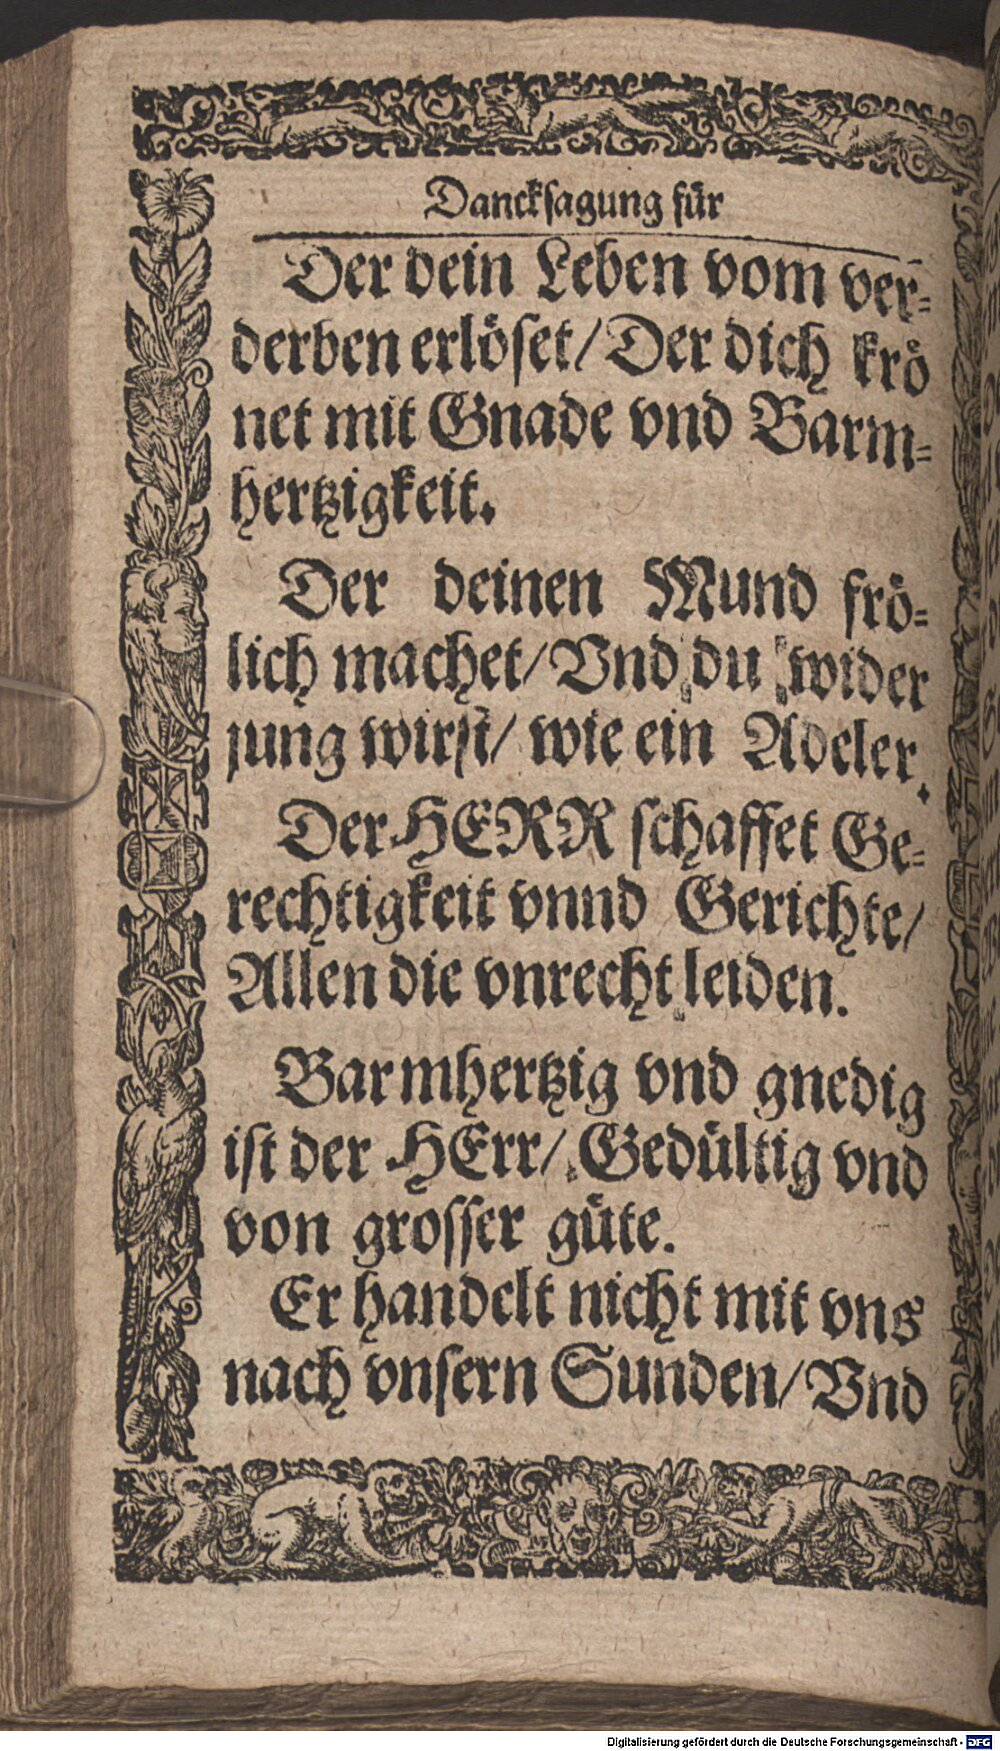 Danckſagung für
Der dein Leben vom ver⸗
derben erlöſet/ Der dich krö
net mit Gnade vnd Barm⸗
hertzigkeit.
Der deinen Mund frö⸗
lich machet/ Vnd du wider
jung wirſt/ wie ein Adeler.
Der HERR ſchaffet Ge⸗
rechtigkeit vnnd Gerichte/
Allen die vnrecht leiden.
Barmhertzig vnd gnedig
iſt der HErr/ Gedültig vnd
von groſſer güte.
Er handelt nicht mit vns
nach vnſern Sunden/ Vnd
Digitalisierung gefördert durch die Deutsche Forschungsgemeinschaft - DFG